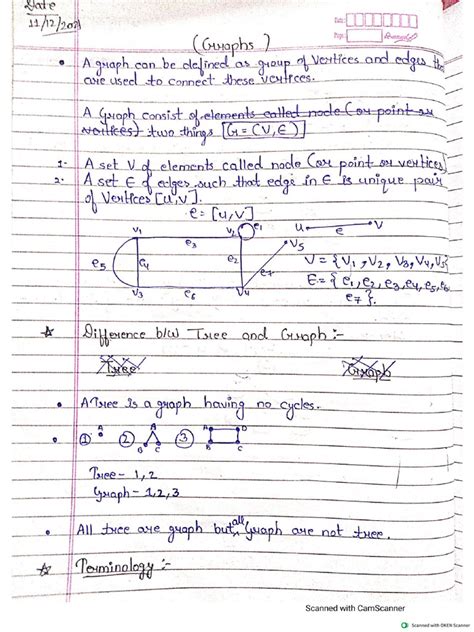 Date
11/12/2021
Date:
Page:
(Graphs)
• A graph can be defined as group of vertices and edges the
are used to connect these vertices.
A Graph consist of elements called node (or point or
vertices) two things [G=(V,E)]
1- A set V of elements called node (or point or vertices)
2- A set E of edges such that edge in E is unique pair
of vertices [u,v].
e=[u,v]
u e V
V1 e3 V2 e1
V5
e5 e4 e2 e7
V = {V1, V2, V3, V4, V5}
V3 e6 V4
E = {e1, e2, e3, e4, e5, e6
e7}.
☆ Difference b/w Tree and Graph :-
Tree Graph
• A Tree is a graph having no cycles.
• ① A ② A B C ③ A D B C
Tree - 1, 2
Graph - 1, 2, 3
• All tree are graph but all graph are not tree.
☆ Terminology :-
Scanned with CamScanner
Scanned with OKEN Scanner